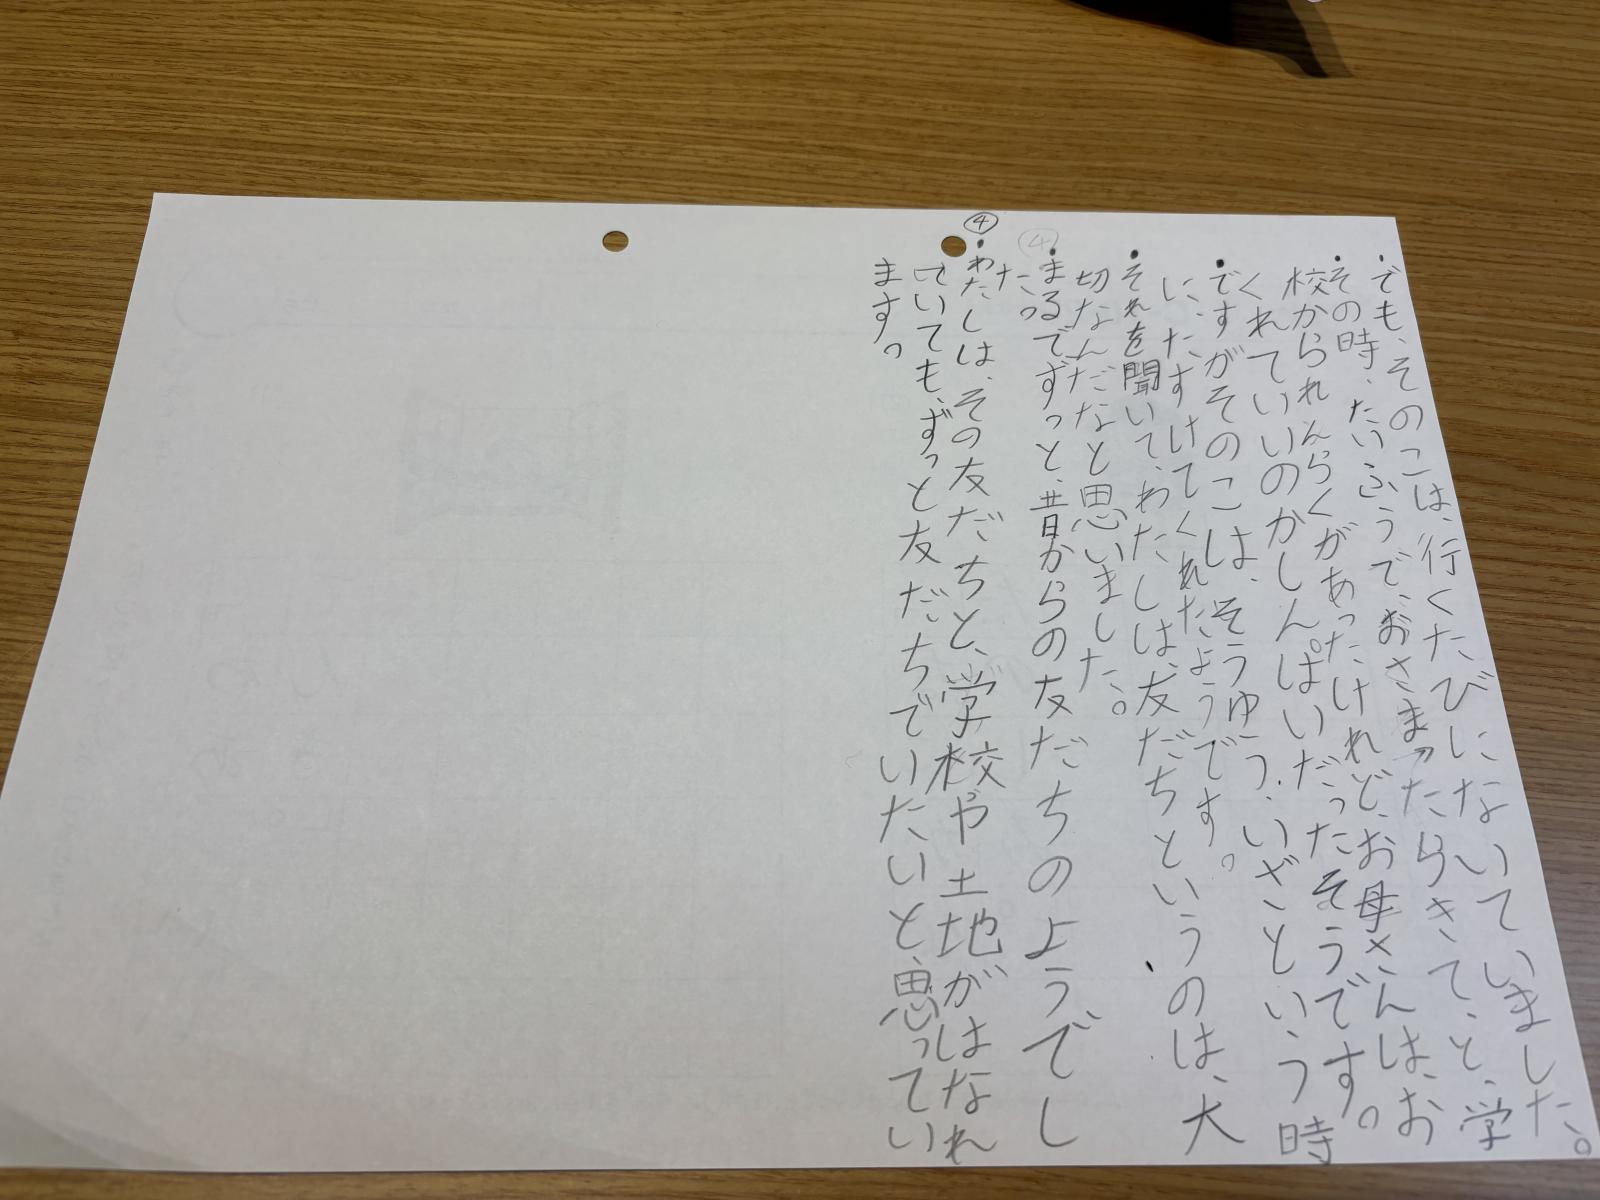 ・でも、そのこは、行くたびにないていました。
・その時、たいふうで、おさまったらきて、と、学
校かられんらくがあったけれど、お母さんは、お
くれていいのかしんぱいだったそうです。
・ですがそのこは、そうゆう、いざという時
に、たすけてくれたようです。
・それを聞いて、わたしは、友だちというのは、大
切なんだなと思いました。
④
・まるで、ずっと、昔からの友だちのようでし
た。
④
・わたしは、その友だちと、学校や土地がはなれ
ていても、ずっと友だちでいたいと、思ってい
ます。